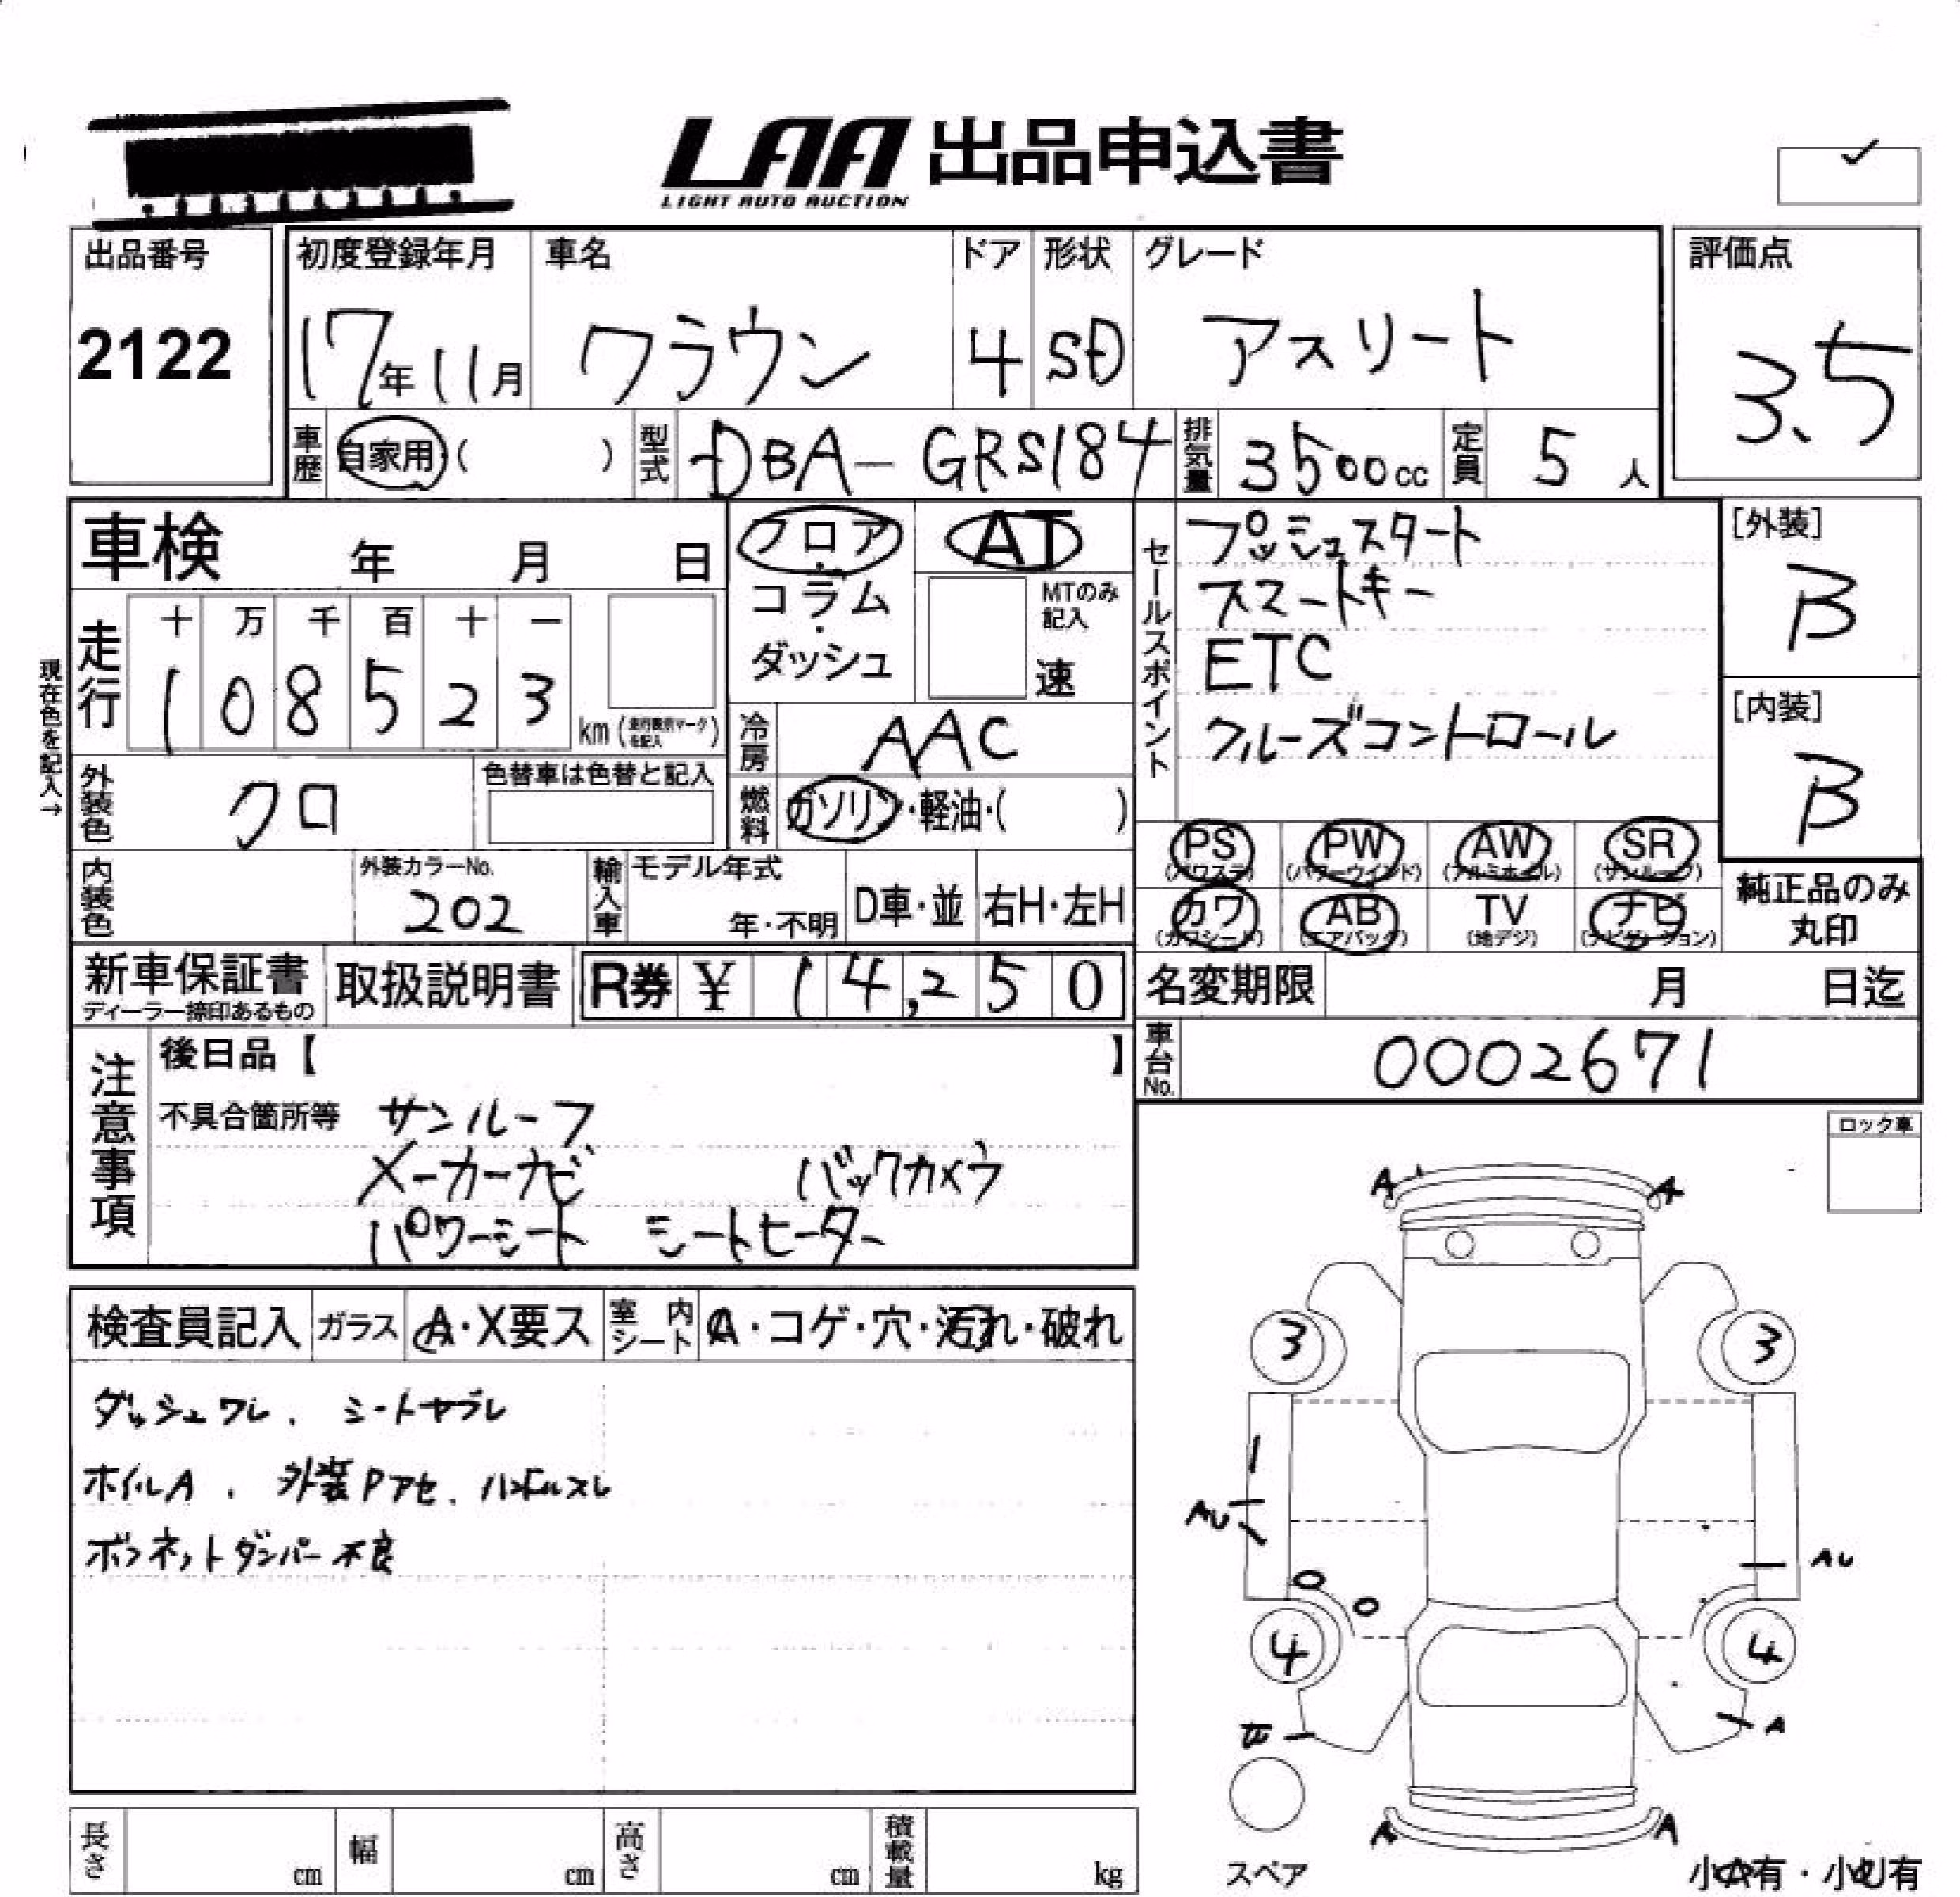 LAA 出品申込書
LIGHT AUTO AUCTION
出品番号
2122
初度登録年月
17年11月
車名
クラウン
ドア
4
形状
SD
グレード
アスリート
評価点
3.5
車歴
自家用 ( )
型式
DBA-GRS184
排気量
3500cc
定員
5人
車検 年 月 日
走行
十 万 千 百 十 一
1 0 8 5 2 3
km
現在色を記入→
フロア・コラム・ダッシュ
AT
MTのみ記入
速
冷房
AAC
燃料
ガソリン・軽油・( )
セールスポイント
プッシュスタート
スマートキー
ETC
クルーズコントロール
[外装]
B
[内装]
B
外装色
クロ
色替車は色替と記入
内装色
外装カラーNo.
202
輸入車
モデル年式
年・不明
D車・並
右H・左H
PS
(パワステ)
PW
(パワーウインド)
AW
(アルミホイル)
SR
(サンルーフ)
カワ
(カワシート)
AB
(エアバック)
TV
(地デジ)
ナビ
(ナビゲーション)
純正品のみ
丸印
新車保証書
ディーラー捺印あるもの
取扱説明書
R券 ¥ 14,250
名変期限 月 日迄
車台No.
0002671
注意事項
後日品【 】
不具合箇所等 サンルーフ
メーカーナビ バックカメラ
パワーシート シートヒーター
ロック車
検査員記入
ガラス
A・X要ス
室内シート
A・コゲ・穴・汚れ・破れ
ダッシュワレ、シートヤブレ
ホイルA、外装Pアセ、ハンドルスレ
ボンネットダンパー不良
A
A
3
3
AU
AU
4
4
A
A
A
スペア
小A有・小U有
長さ cm
幅 cm
高さ cm
積載量 kg